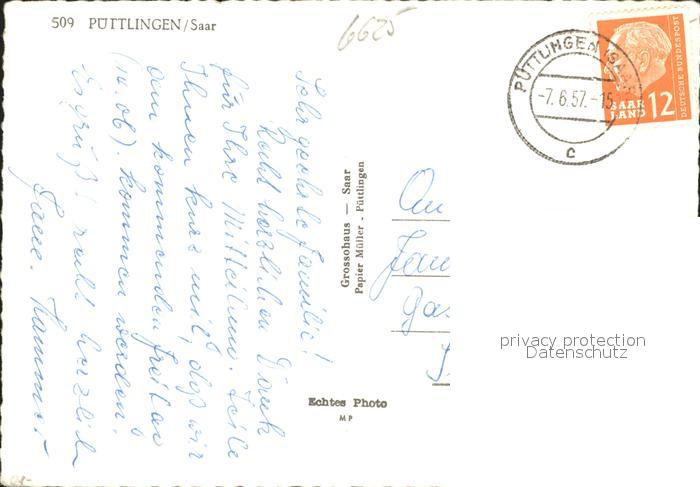 509 PÜTTLINGEN/Saar
6625
PÜTTLINGEN (SAAR)
-7.6.57.-15
c
SAAR
LAND 12
DEUTSCHE BUNDESPOST
Sehr geehrte Familie!
Recht herzlichen Dank
für Ihre Mitteilung. Teile
Ihnen kurz mit, daß wir
am kommenden Freitag
(14.06). kommen werden.
Es grüßt recht herzlich
Fam.
Grossohaus — Saar
Papier Müller - Püttlingen
Echtes Photo
MP
An
Fam
privacy protection
Datenschutz